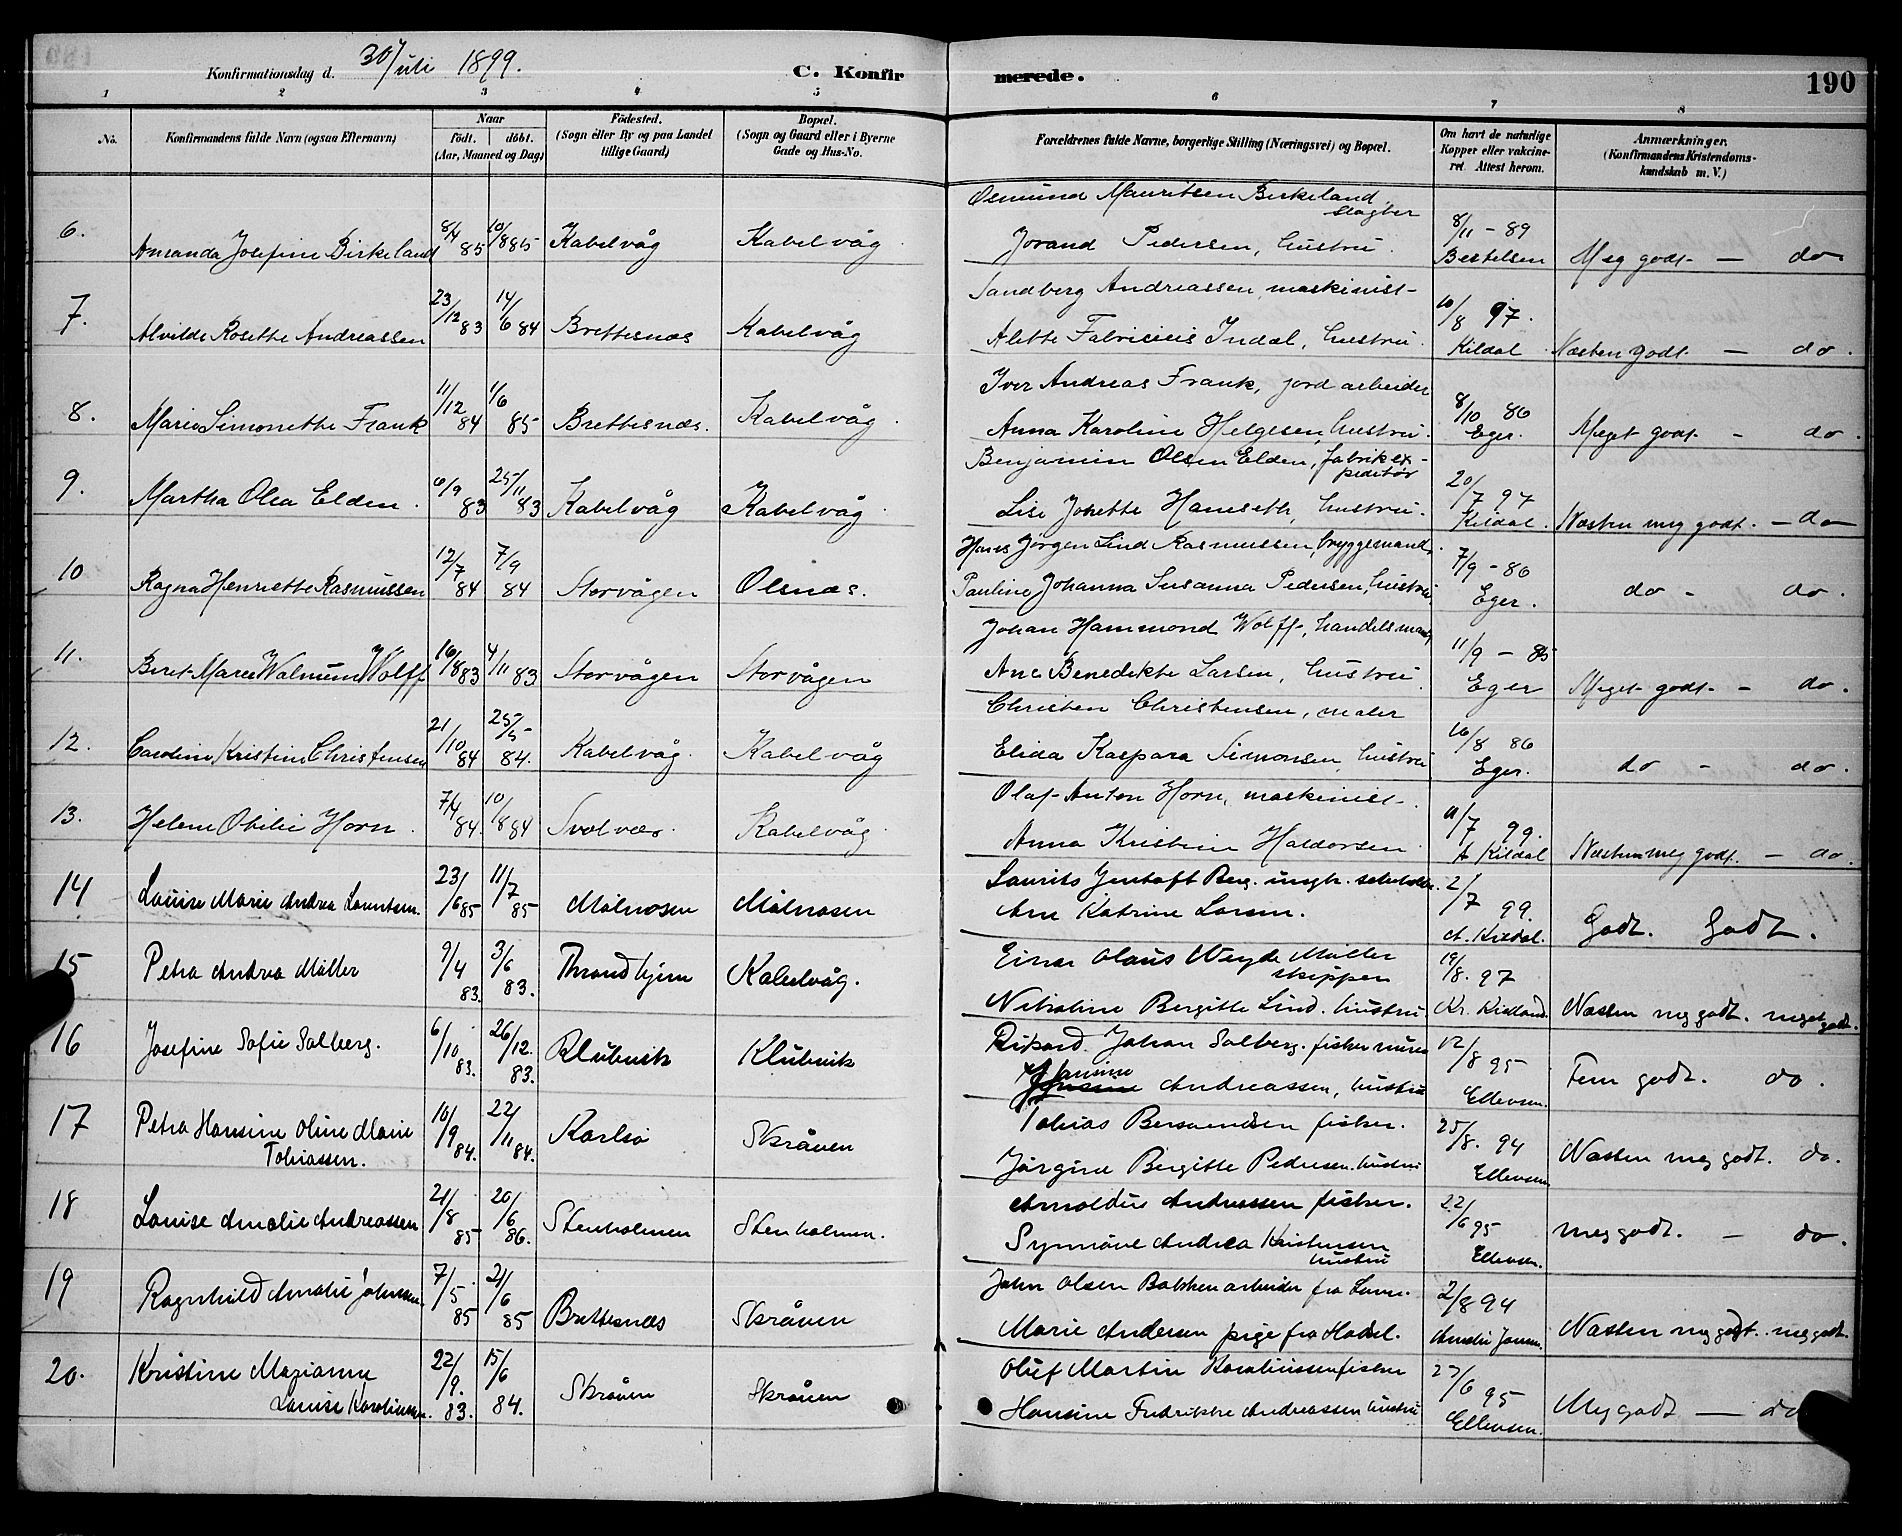 Konfirmationsdag d. 30 Juli 1899.
C. Konfirmerede.
190
1 2 3 4 5 6 7 8
No.
Konfirmandens fulde Navn (ogsaa Efternavn)
Naar
født. døbt.
(Aar, Maaned og Dag)
Fødested.
(Sogn eller By og paa Landet
tillige Gaard)
Bopæl.
(Sogn og Gaard eller i Byerne
Gade og Hus-No.
Forældrenes fulde Navne, borgerlige Stilling (Næringsvei) og Bopæl.
Om havt de naturlige
Kopper eller vakcine-
ret. Attest herom.
Anmærkninger.
(Konfirmandens Kristendoms-
kundskab m. V.)
Osmund Mauritsen Birkeland
slagter
6. Amanda Josefine Birkeland 8/4 85 10/8 85 Kabelvåg Kabelvåg Jorand Pedersen, hustru. 8/11 - 89 Bertelsen Meg godt - do
Sandberg Andreassen, maskinist
7. Alvilde Rosette Andreassen 23/12 83 14/6 84 Brettesnæs Kabelvåg Alette Fabricius Indal, hustru. 10/8 97. Kildal Næsten godt - do.
Iver Andreas Frank, jordarbeider
8. Marie Simonette Frank 11/12 84 1/6 85 Brettesnæs. Kabelvåg Anna Karoline Helgesen, hustru. 8/10 86 Eger. Meget godt - do.
Benjamin Olsen Elden, fabrikex-
peditør
9. Martha Olea Elden. 6/9 83 25/11 83 Kabelvåg Kabelvåg Lise Jonette Hameseth, hustru. 20/7 97 Kildal. Næsten meg godt. - do
Hans Jørgen Lind Rasmussen, bryggemand.
10 Ragna Henriette Rasmussen 12/7 84 7/9 84 Storvågen Olsnæs. Pauline Johanna Susanna Pedersen, hustru. 7/9 - 86 Eger. do - do.
Johan Hammond Wolff, handelsmand
11. Beret Marie Walnum Wolff 16/8 83 4/11 83 Storvågen Storvågen Ane Benedikte Larsen, hustru 11/9 - 85 Eger Meget godt - do.
Christen Christensen, maler
12. Caroline Kristine Christensen 21/10 84 25/5 84. Kabelvåg. Kabelvåg Elida Kaspara Simonsen, hustru 16/8 86 Eger. do - do.
Olaf Anton Horn, maskinist.
13. Helene Otilie Horn. 7/4 84. 10/8 84 Svolvær. Kabelvåg. Anna Kristine Haldorsen 11/7 99. A Kildal Næsten meg godt. - do.
Laurits Jentoft Berg.
14 Louise Marie Andrea Lauritsen. 23/6 85 11/7 85 Mølnosen Mølnosen Ane Katrine Larsen. 2/7 99. A. Kildal. Godt. Godt.
Einar Olaus Weyde Müller
skipper
15 Petra Andrea Müller 9/4 83. 3/6 83. Throndhjem Kabelvåg. Nikoline Bergitte Lind. hustru 19/8. 97 Næsten meg godt. meget godt.
Rikard Johan Solberg. fisker
16 Josefine Sofie Solberg. 6/10 83. 26/12. 83. Klubvik Klubvik Jansine Andreassen, hustru 12/8 95 Ellevsen. Tem godt. do.
Tobias Bersvendsen fisker.
17 Petra Hansine Oline Marie
Tobiassen. 10/9 84. 22/11 84. Karlsø Skråven Jørgine Bergitte Pedersen. hustru 25/8. 94 Ellevsen Næsten meg godt. do.
Arnoldus Andreassen fisker.
18 Louise Amalie Andreassen 21/8 85 20/6 86. Stenholmen Stenholmen. Synnøve Andrea Kristensen
hustru 22/6 95 Ellevsen. meg godt. - do.
John Olsen Bakken arbeider fra
19 Ragnhild Amalie Johnsen. 7/5 85 21/6 85 Brettesnæs Skråven Marie Andersen pige fra Hadsel. 2/8 94 Næsten meg godt. meg godt.
Oluf Martin Karoliussen fisker
20. Kristine Marianne
Louise Karoliussen. 22/9. 83. 15/6 84. Skråven Skråven Hansine Fredrikke Andreassen hustru 27/6 95 Ellevsen. Meg godt - do